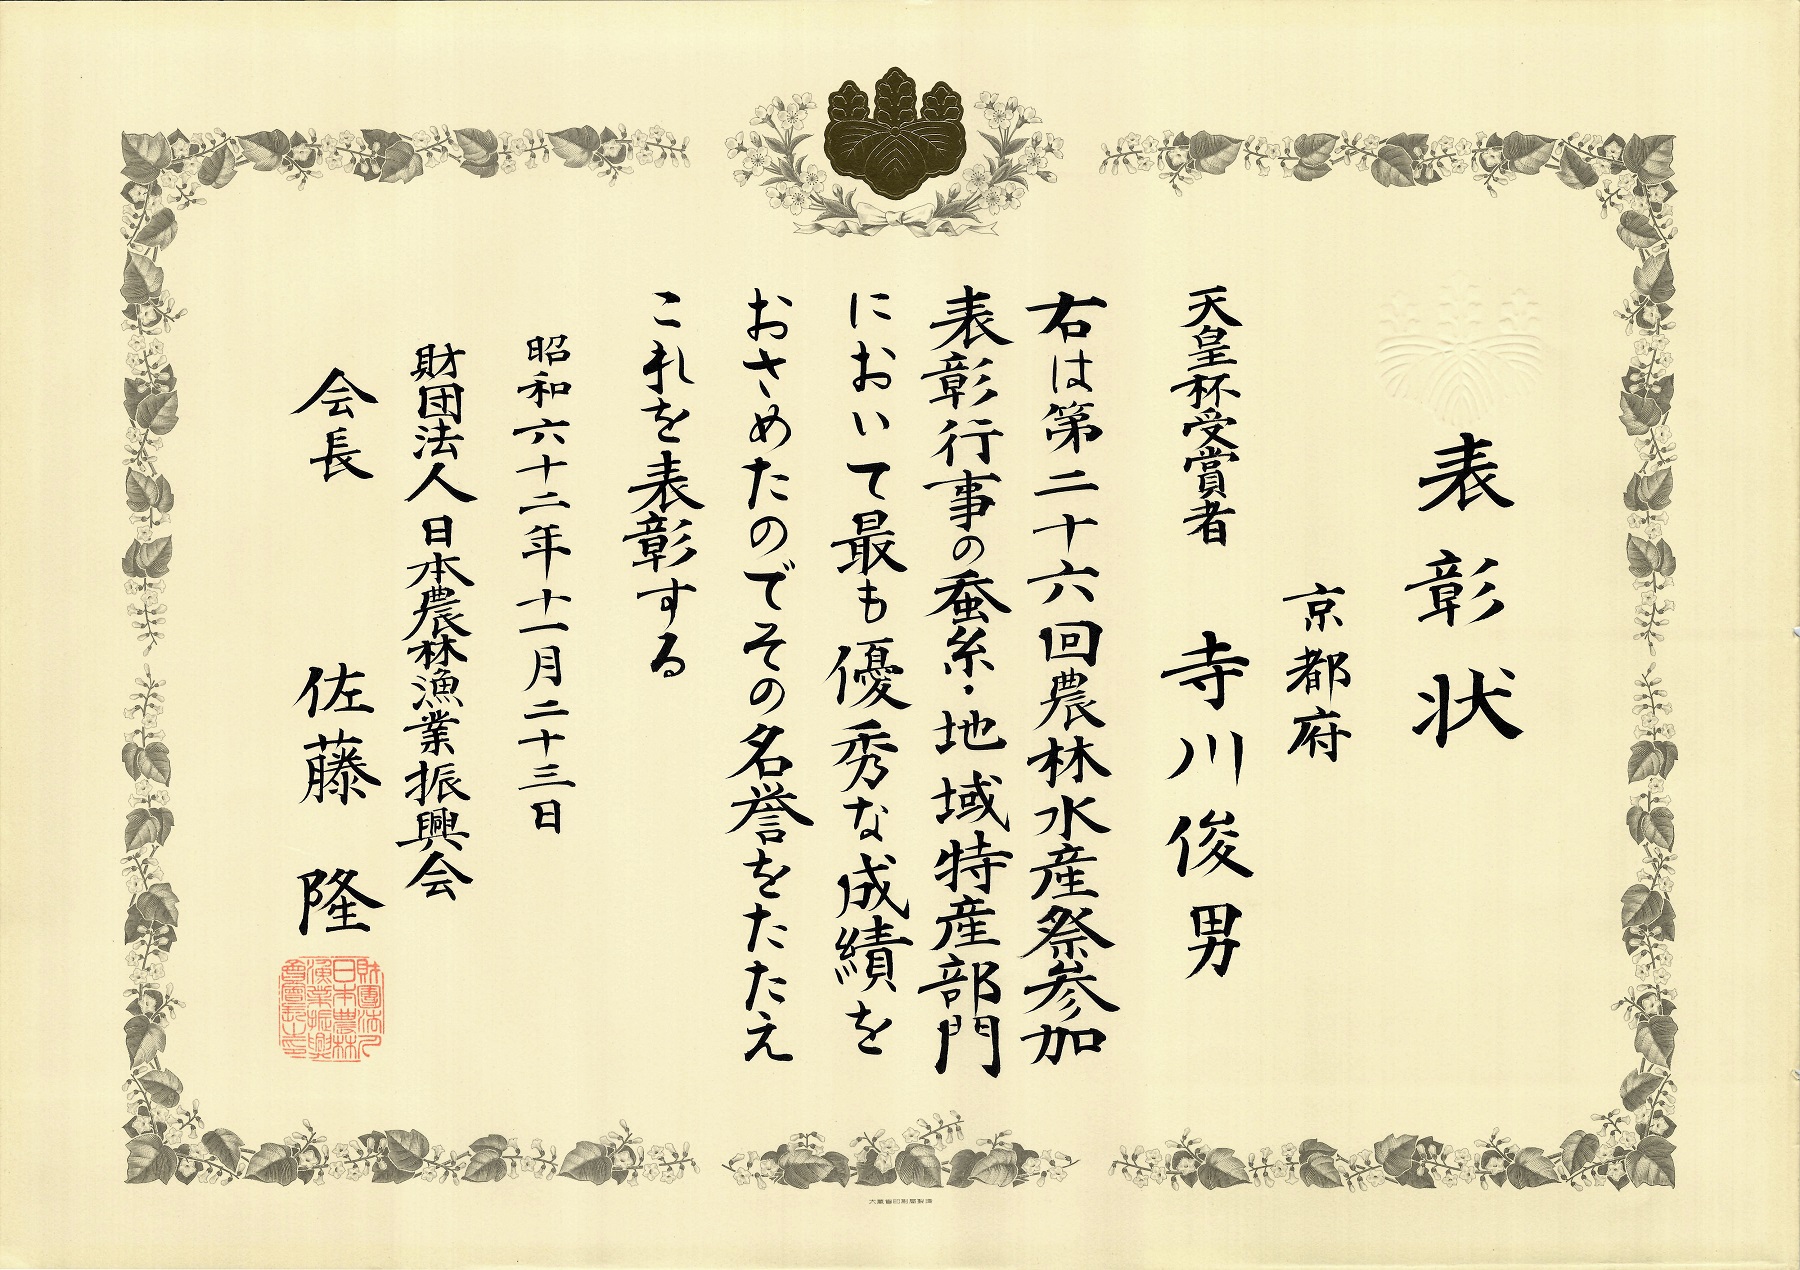 表彰状
京都府
天皇杯受賞者 寺川俊男
右は第二十六回農林水産祭参加
表彰行事の蚕糸・地域特産部門
において最も優秀な成績を
おさめたのでその名誉をたたえ
これを表彰する
昭和六十二年十一月二十三日
財団法人日本農林漁業振興会
会長 佐藤隆
大蔵省印刷局製造